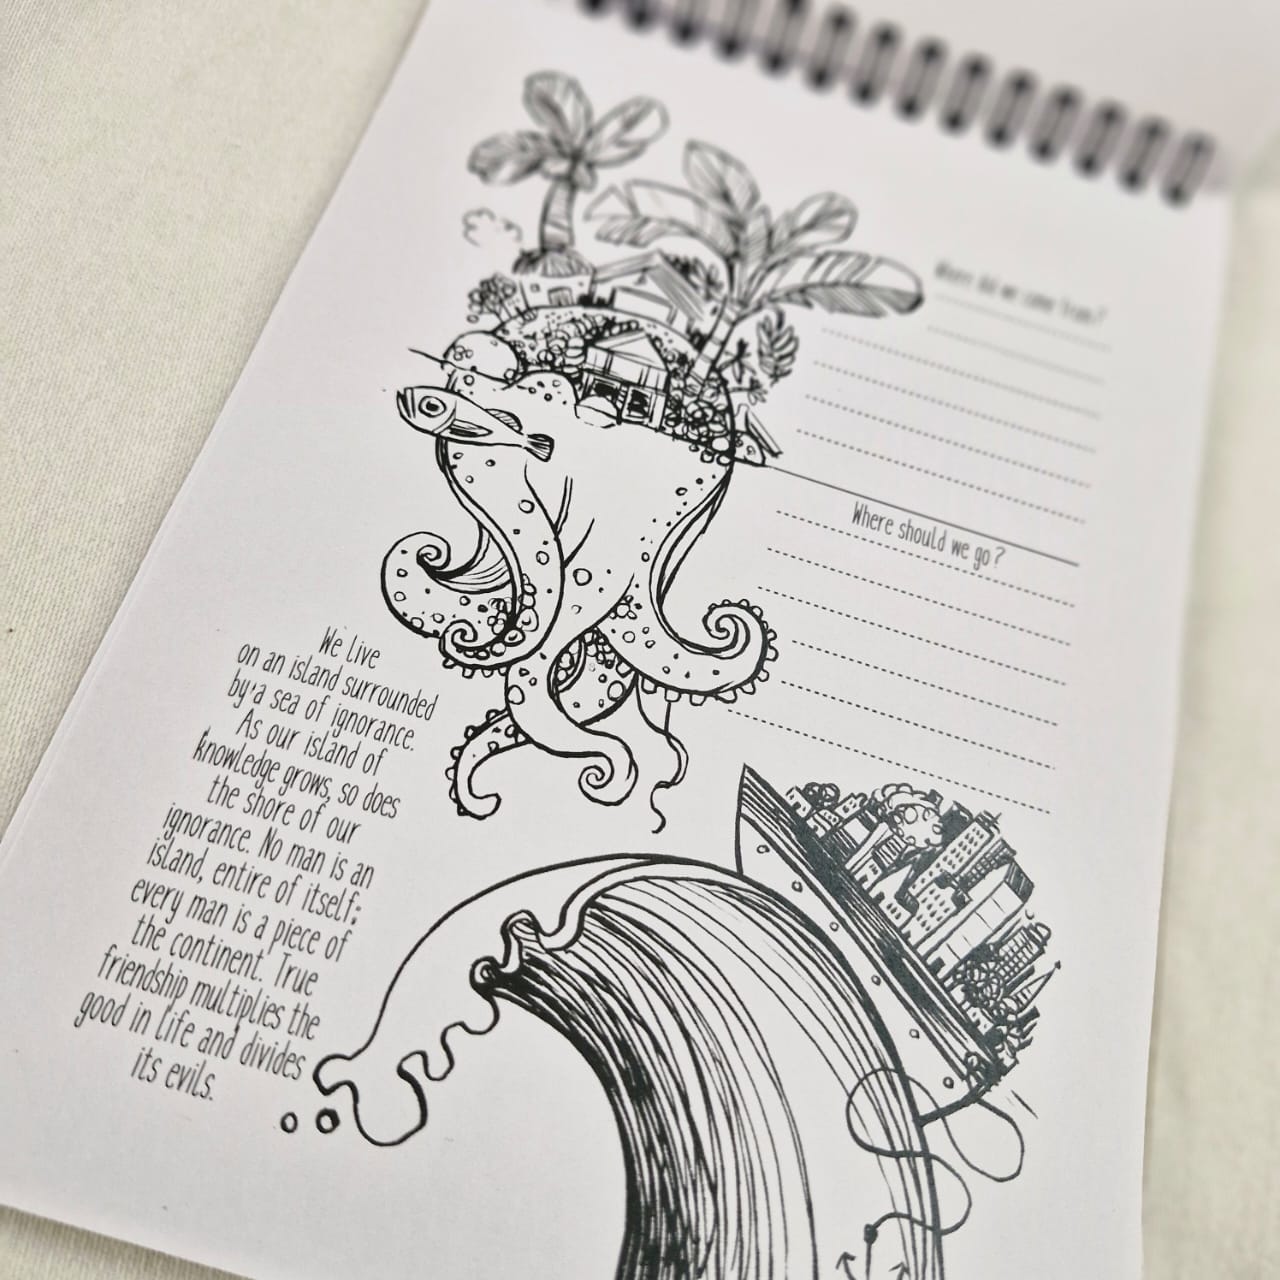 Where did we come from?
Where should we go?
We Live
on an island surrounded
by a sea of ignorance.
As our island of
knowledge grows, so does
the shore of our
ignorance. No man is an
island, entire of itself;
every man is a piece of
the continent. True
friendship multiplies the
good in life and divides
its evils.